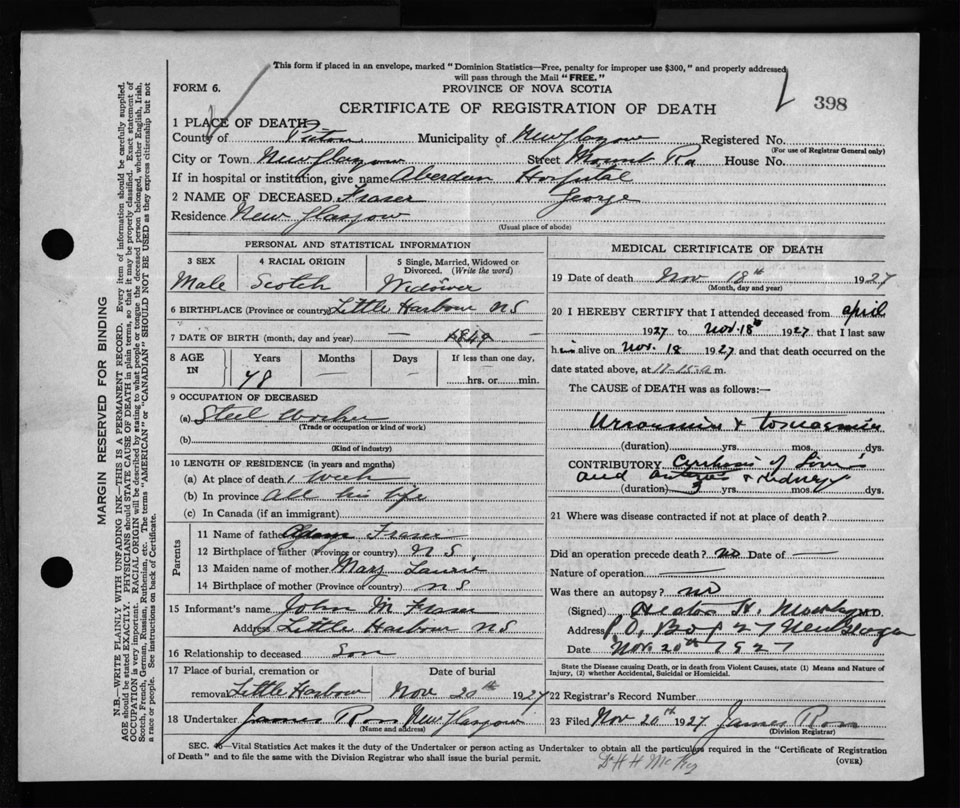 This form if placed in an envelope, marked "Dominion Statistics—Free, penalty for improper use $300," and properly addressed
will pass through the Mail "FREE."
FORM 6.
PROVINCE OF NOVA SCOTIA
CERTIFICATE OF REGISTRATION OF DEATH
398
1 PLACE OF DEATH
County of Pictou Municipality of New Glasgow Registered No.
(For use of Registrar General only)
City or Town New Glasgow Street Mount Ra House No.
If in hospital or institution, give name Aberdeen Hospital
2 NAME OF DECEASED Fraser George
Residence New Glasgow
(Usual place of abode)
PERSONAL AND STATISTICAL INFORMATION
3 SEX 4 RACIAL ORIGIN 5 Single, Married, Widowed or Divorced. (Write the word)
Male Scotch Widower
6 BIRTHPLACE (Province or country) Little Harbour NS
7 DATE OF BIRTH (month, day and year) — 1849
8 AGE IN Years Months Days If less than one day,
78 — — hrs. or min.
9 OCCUPATION OF DECEASED
(a) Steel Worker
(Trade or occupation or kind of work)
(b)
(Kind of industry)
10 LENGTH OF RESIDENCE (in years and months)
(a) At place of death 1 Week
(b) In province All his life
(c) In Canada (if an immigrant)
Parents
11 Name of father Adam Fraser
12 Birthplace of father (Province or country) N S
13 Maiden name of mother Mary Laurie
14 Birthplace of mother (Province or country) NS
15 Informant's name John M Fraser
Address Little Harbour NS
16 Relationship to deceased Son
17 Place of burial, cremation or Date of burial
removal Little Harbour Nov 20th 1927
18 Undertaker James Ross New Glasgow
(Name and address)
MEDICAL CERTIFICATE OF DEATH
19 Date of death Nov 18th 1927
(Month, day and year)
20 I HEREBY CERTIFY that I attended deceased from April
1927 to Nov. 18th 1927, that I last saw
him alive on Nov. 18 1927 and that death occurred on the
date stated above, at 11-15-a m.
The CAUSE of DEATH was as follows:—
&
(duration) yrs. mos. dys.
CONTRIBUTORY Cirrhosis of Liver
and & Kidney
(duration) 3 yrs. mos. dys.
21 Where was disease contracted if not at place of death?
Did an operation precede death? no Date of —
Nature of operation —
Was there an autopsy? no
(Signed) Hector H. M.D.
Address P.O. Box 27 New Glasgow
Date Nov. 20th 1927
State the Disease causing Death, or in death from Violent Causes, state (1) Means and Nature of
Injury, (2) whether Accidental, Suicidal or Homicidal.
22 Registrar's Record Number
23 Filed Nov 20th 1927 James Ross
(Division Registrar)
SEC. —Vital Statistics Act makes it the duty of the Undertaker or person acting as Undertaker to obtain all the particulars required in the "Certificate of Registration
of Death" and to file the same with the Division Registrar who shall issue the burial permit.
(OVER)
Dr H H McKay
MARGIN RESERVED FOR BINDING
N.B.—WRITE PLAINLY WITH UNFADING INK—THIS IS A PERMANENT RECORD. Every item of information should be carefully supplied.
AGE should be stated EXACTLY. PHYSICIANS should STATE CAUSE OF DEATH in plain terms, so that it may be properly classified. Exact statement of
OCCUPATION is very important. RACIAL ORIGIN will be described by stating to what people or tongue the deceased person belonged, whether English, Irish,
Scotch, French, German, Russian, Ruthenian, etc. The terms "AMERICAN" or "CANADIAN" SHOULD NOT BE USED as they express citizenship but not
a race or people. See instructions on back of Certificate.